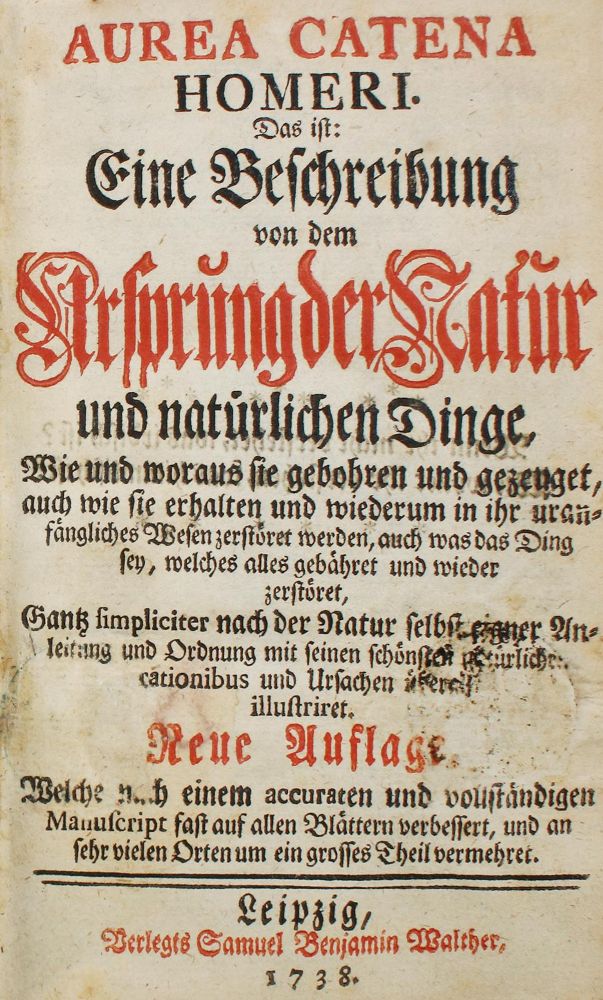 AUREA CATENA
HOMERI.
Das iſt:
Eine Beſchreibung
von dem
Urſprung der Natur
und natürlichen Dinge,
Wie und woraus ſie gebohren und gezeuget,
auch wie ſie erhalten und wiederum in ihr urañ-
fängliches Weſen zerſtöret werden, auch was das Ding
ſey, welches alles gebähret und wieder
zerſtöret,
Gantz ſimpliciter nach der Natur ſelbſt eigner An-
leitung und Ordnung mit ſeinen ſchönſten
cationibus und Urſachen
illuſtriret.
Neue Auflage.
Welche nach einem accuraten und vollſtändigen
Manuſcript faſt auf allen Blättern verbeſſert, und an
ſehr vielen Orten um ein groſſes Theil vermehret.
Leipzig,
Verlegts Samuel Benjamin Walther,
1738.